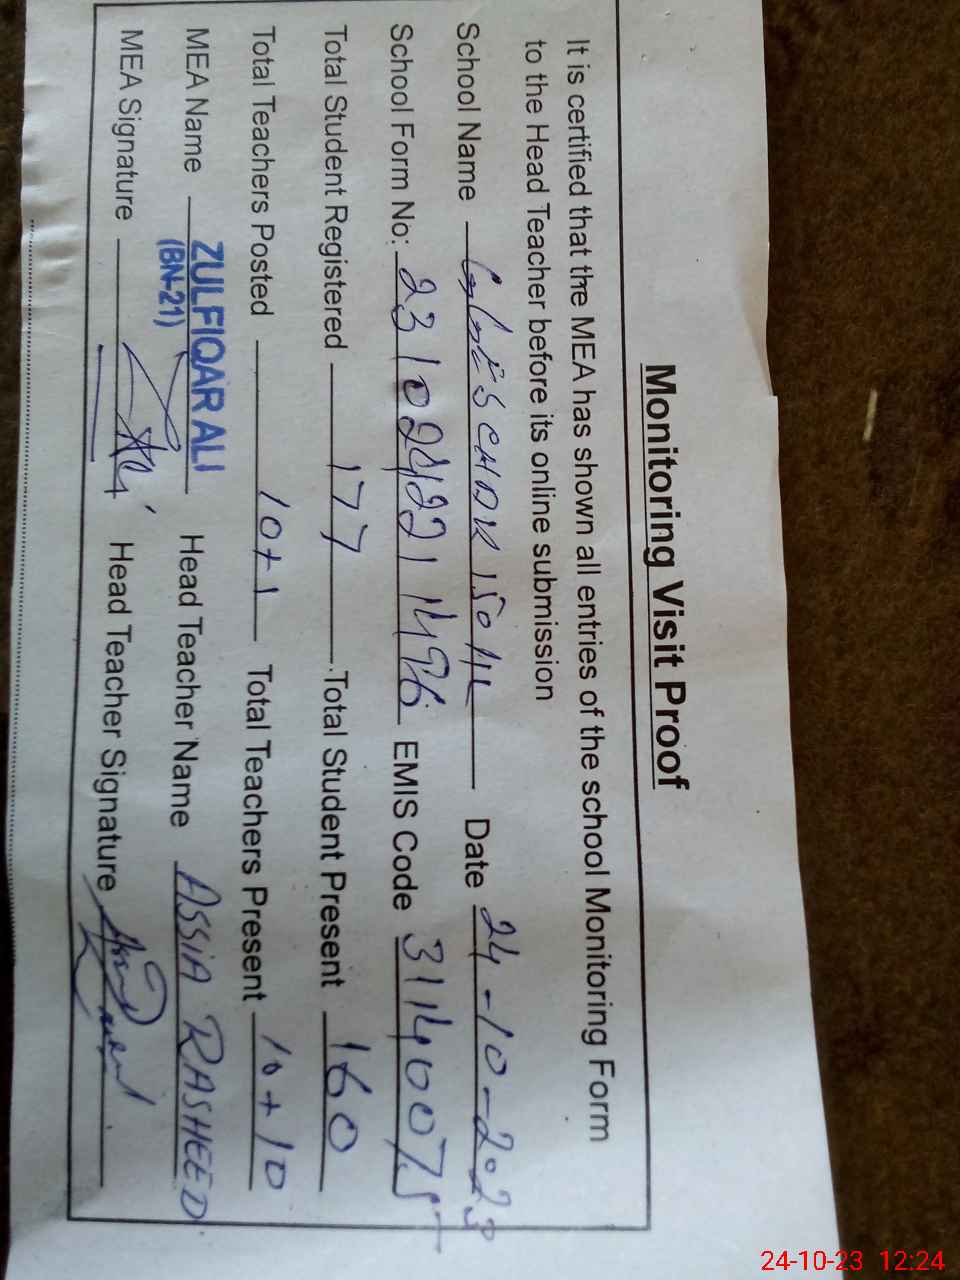 Monitoring Visit Proof
It is certified that the MEA has shown all entries of the school Monitoring Form
to the Head Teacher before its online submission
School Name CHAK 150 Date 24-10-2023
School Form No: EMIS Code 31140075
Total Student Registered 177 Total Student Present 160
Total Teachers Posted 10+1 Total Teachers Present 10+10
MEA Name ZULFIQAR ALI Head Teacher Name ASSIA RASHEED
(BN-21)
MEA Signature Head Teacher Signature
24-10-23 12:24